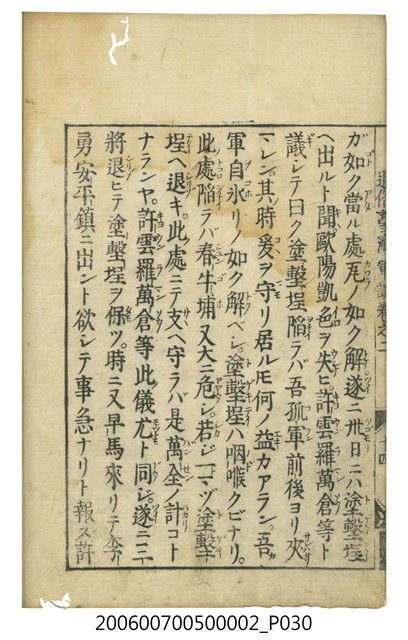 ガ如ク當ル處瓦ノ如ク解遂ニ卅日ニハ塗墼埕
ヘ出ルト聞歐陽凱色ヲ失ヒ許雲羅萬倉等ト
議シテ曰ク塗墼埕陥ラバ吾孤軍前後ヨリ夾
レン其時爰ヲ守リ居ル𪜈何ノ益カアラン吾カ
軍自氷リノ如ク解ベシ塗墼埕ハ咽喉クビナリ
此處陥ラバ春牛埔又大ニ危シ若シマヅ塗墼
埕ヘ退キ此處ニテ支ヘ守ラバ是萬全ノ計コト
ナランヤ許雲羅萬倉等此儀尤ト同シ遂ニ三
將退ヒテ塗墼埕ヲ保ツ時ニ又早馬來リテ李
勇安平鎮ニ出ント欲シテ事急ナリト報ズ許
200600700500002_P030